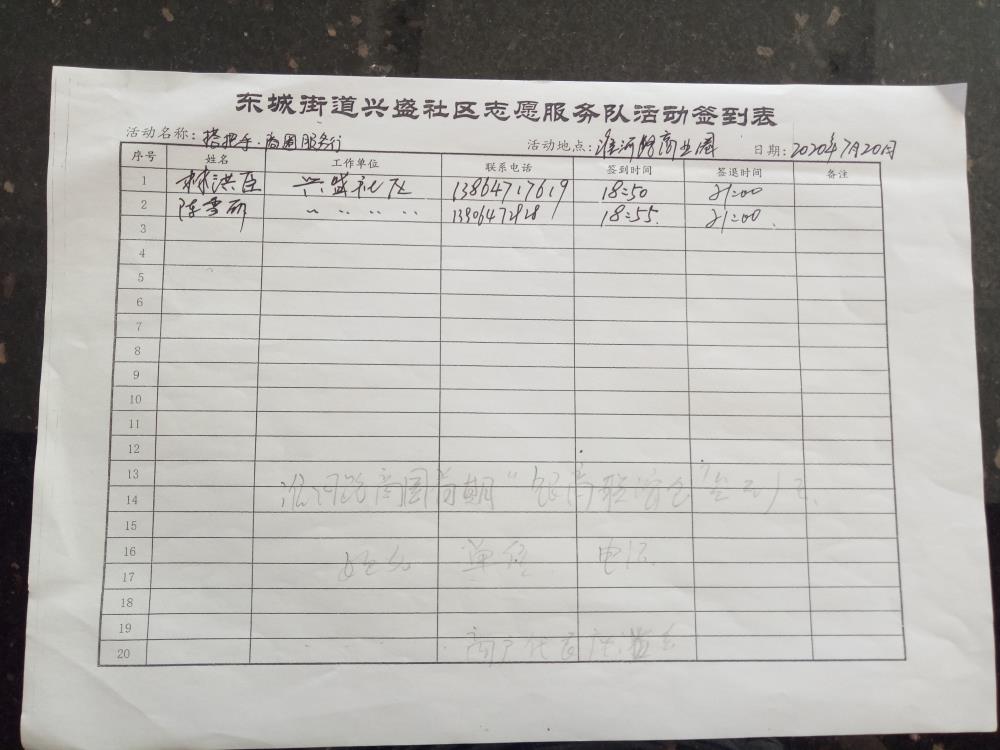 东城街道兴盛社区志愿服务队活动签到表
活动名称：搭把手·商圈服务行 活动地点：淮河路商业圈 日期：2020年7月20日
序号 姓名 工作单位 联系电话 签到时间 签退时间 备注
1 林洪臣 兴盛社区 13864717619 18:50 21:00
2 陈雪研 〃 〃 〃 〃 13906472828 18:55. 21:00.
3
4
5
6
7
8
9
10
11
12
13
淮河路商圈首期"银商联
14
15
16 姓名 单位 电话
17
18
19
商户代表
20